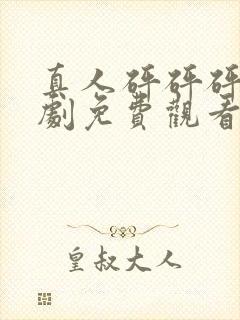 真人砰砰砰
劇免費觀看
皇叔大人